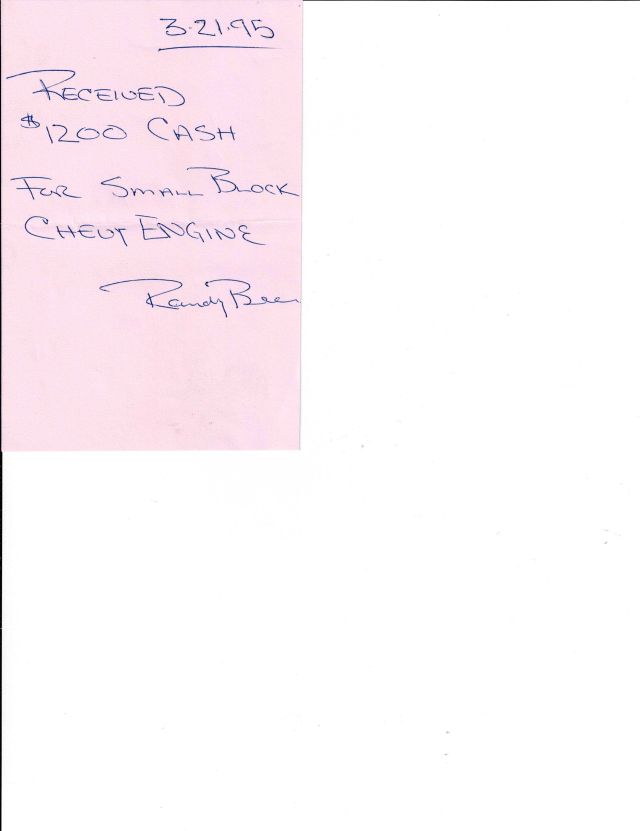 3·21·95
RECEIVED
$1200 CASH
FOR SMALL BLOCK
CHEVY ENGINE
Randy